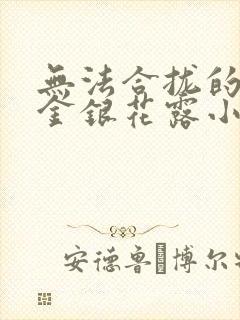 無法合拢的
金銀花露小
安德鲁·博尔